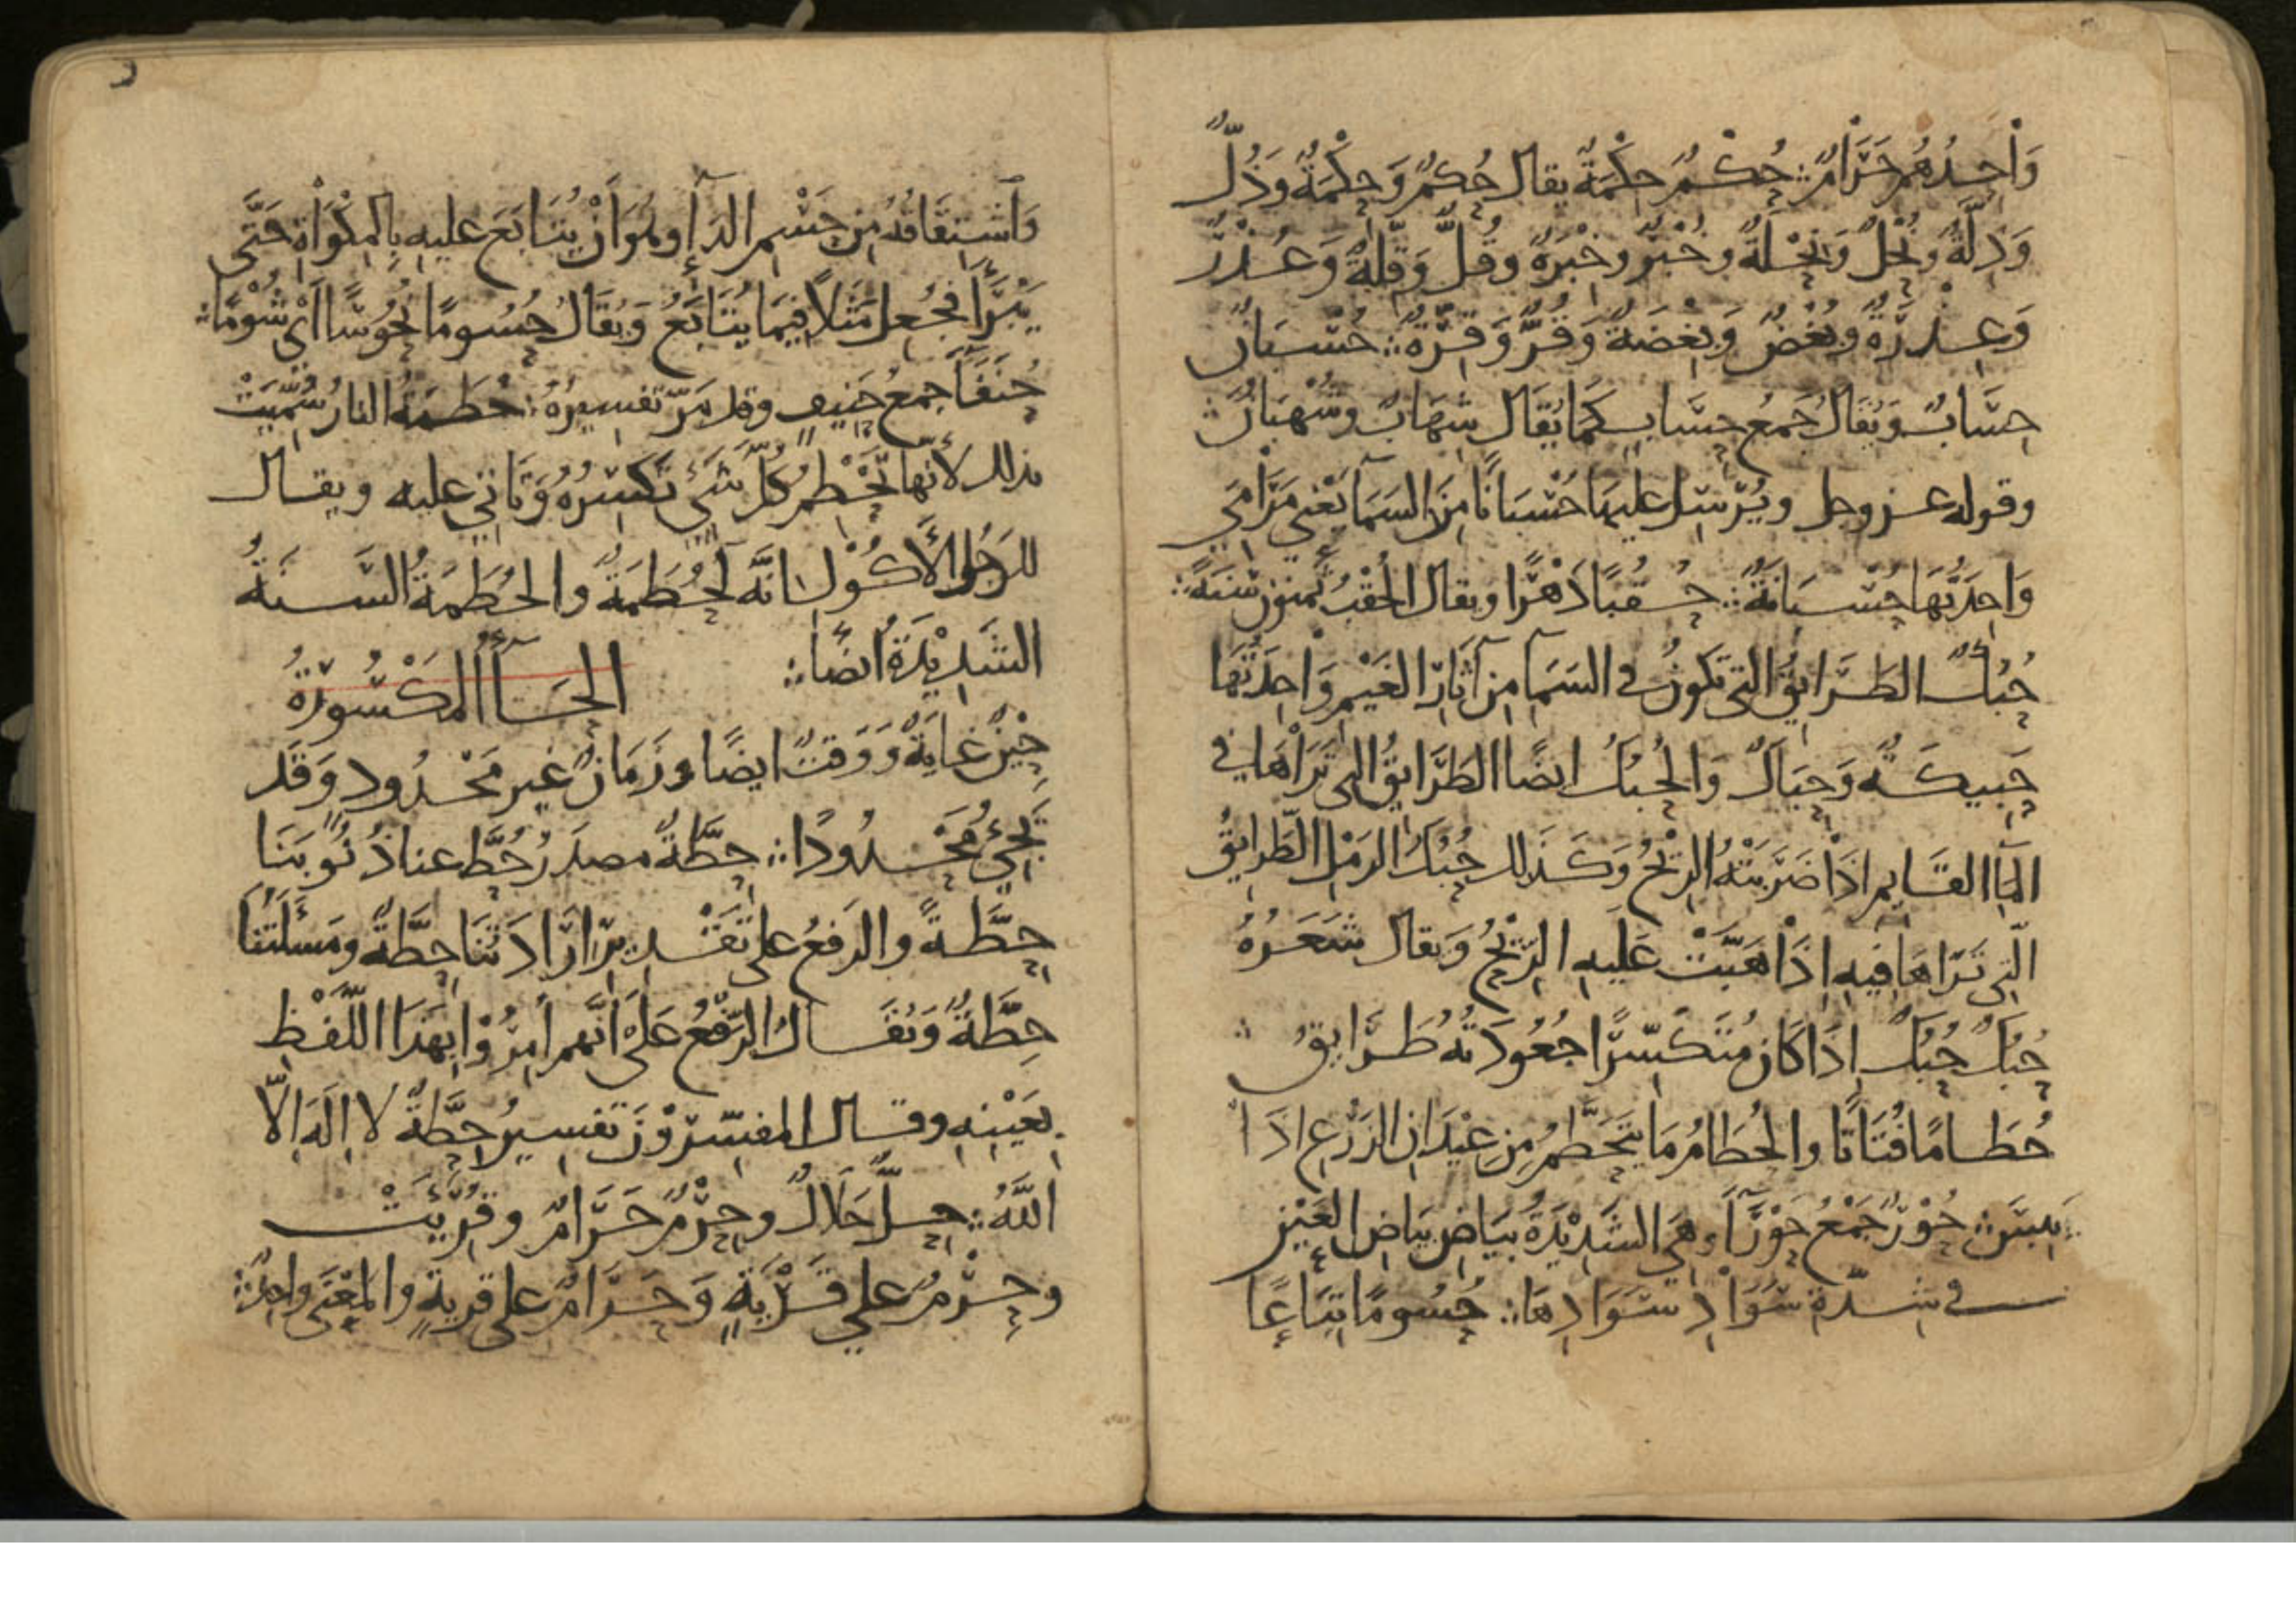 وَاحِدُهُم حَرَامٌ ∴ حُكْمٌ حِكْمَةٌ يقال حُكمٌ وَحِكْمَةٌ وَذُلٌّ
وَذِلَّةٌ وَنُحْلٌ وَنِحْلَةٌ وَخُبْرٌ وخِبْرَةٌ وقُلٌّ وَقِلَّةٌ وَعُذْرٌ
وَعِذْرَةٌ وبُغْضٌ وَبِغْضَةٌ وَقُرٌّ وَقِرَّةٌ ∴ حُسْبَانٌ
حِسَابٌ وَيُقَالُ جَمعُ حِسَابٍ كَمَا يُقَال شِهَابٌ وشُهْبَانٌ ∴
وقوله عز وجل ويُرْسِلَ عليها حُسْبَانًا مِنَ السَمَا يَعْنِي مَرَامِيَ
وَاحِدَتُهَا حُسْبَانَةٌ ∴ حُقُبًا دَهْرًا ويقال الحُقْبُ ثمنون سَنَةً ∴
حُبُكٌ الطَرَايِقُ التي تكونُ في السَمَآ مِن آثَارِ الغَيْمِ وَاحِدَتُهَا
حَبِيكَةٌ وَحِبَاكٌ وَالحُبُكُ ايضًا الطَرَايِقُ التي تَرَاهَا في
المآ القَايِمِ اذَا ضَرَبَتْهُ الرِيْحُ وَكَذَلِك حُبُكُ الرَمْلِ الطَرايِقُ
الَّتِي تَرَاهَا فِيهِ اِذَا هَبَّتْ عَلَيهِ الرِيْحُ وَيقال شَعَرُهُ
حُبُكٌ حُبُكٌ اِذَا كَانَ مُتَكَسِّرًا جُعُودَتُهُ طَرَايِقُ ∴
حُطَامًا فُتَاتًا والحُطَامُ مَا يَتَحَطَّمُ مِن عِيْدَانِ الزَرْعِ اذَا
يَبِسَ ∴ حُوْرٌ جَمْعُ حَوْرَآءَ وهي الشَدِيْدَةُ بَيَاضِ بَيَاضِ العَيْنِ
في شِدَّةِ سَوَادِ سَوَادِهَا ∴ حُسُومًا تِبَاعًا
وَاَشتِقَاقُهُ مِن حَسْمِ الدَآءِ وهُوَ اَنْ يُتَابَعَ عليهِ بِالمِكْوَاةِ حَتَّى
يَبْرَأَ فجُعِلَ مَثَلاً فِيمَا يُتَابَعُ وَيُقَالُ حُسُومًا نُحُوسًا اَيْ شُوْمًا ∴
حُنَفَآءَ جَمعُ حَنِيفٍ وقد مَرَّ تفسِيرُهُ ∴ حُطَمَةُ النارُ سُمِّيَتْ
بذلك لاَنَّهَا تَحْطِمُ كُلَّ شَيْءٍ تَكسِرُهُ وَتَاتي عليه ويقال
للرَجُلِ الأَكُوْلِ اِنَّه لَحُطَمَةٌ والحُطَمَةُ السَنَةُ
الشَدِيْدَةُ ايْضًا ∴ الحَآءُ المَكْسُورَةُ
حِيْنٌ غايَةٌ وَوَقتٌ ايضًا وزَمَانٌ غير مَحْدُودٍ وَقَد
يَجِيْءُ مَحْدُودًا ∴ حِطَّةٌ مصدَرُ حُطَّ عنا ذُنُوبَنَا
حِطَّةً والرَفعُ على تَقْدِيرِ اِرَادَتُنَا حِطَّةٌ ومَسئَلَتُنَا
حِطَّةٌ وَيُقَالُ الرَفْعُ عَلَى اَنَّهم اُمِرُوْا بِهَذَا اللَّفْظِ
بِعَيْنِهِ وقال المفسِّرُوْنَ تَفسِيرُ حِطَّةٌ لا اِلَهَ اِلاّ
اللَّهُ ∴ حِلٌّ حَلَالٌ وحِرْمٌ حَرَامٌ وقُرِئَتْ
وحِرْمٌ علي قَرْيَةٍ وَحَرَامٌ على قريةٍ والمَعْنَى واحِدٌ ∴